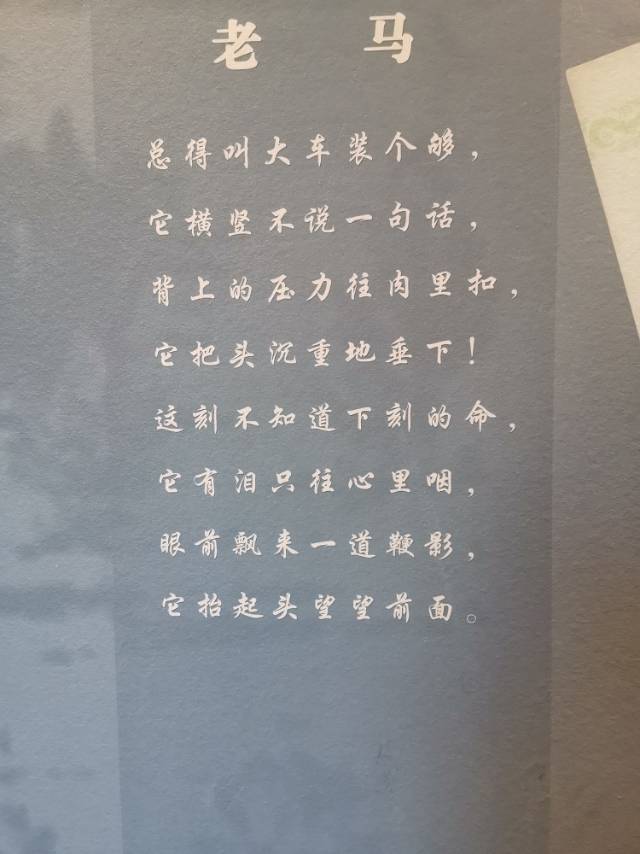 老马
总得叫大车装个够，
它横竖不说一句话，
背上的压力往肉里扣，
它把头沉重地垂下！
这刻不知道下刻的命，
它有泪只往心里咽，
眼前飘来一道鞭影，
它抬起头望望前面。